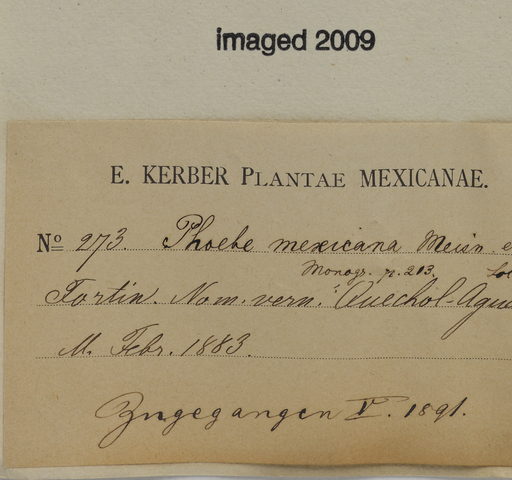 imaged 2009
E. KERBER PLANTAE MEXICANAE.
Nº 273. Phoebe mexicana Meisn.
Monogr. p. 213.
Fortin. Nom. vern. "Quechol-Agua
M. Febr. 1883.
Zugegangen V. 1891.